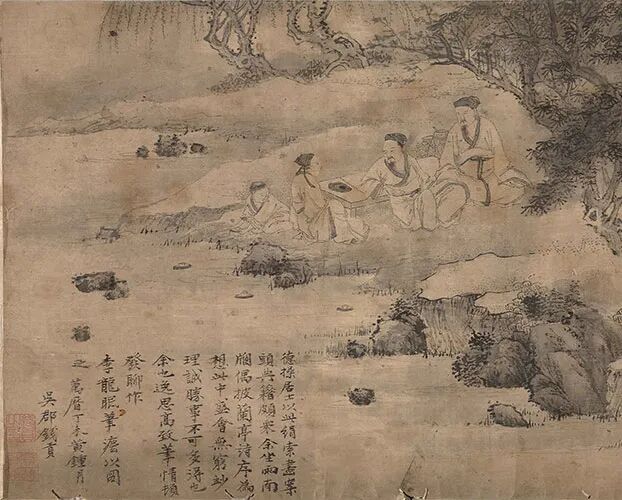 德操居士以此絹索畫案
頭典籍頗寒余坐雨南
牕偶披蘭亭詩序為
想此中並會無窮妙
理誠勝事不可多得也
余也逸思高致筆情頓
發聊作
李龍眠筆漫以圖
之萬曆丁未黃鍾月
吳郡錢貢